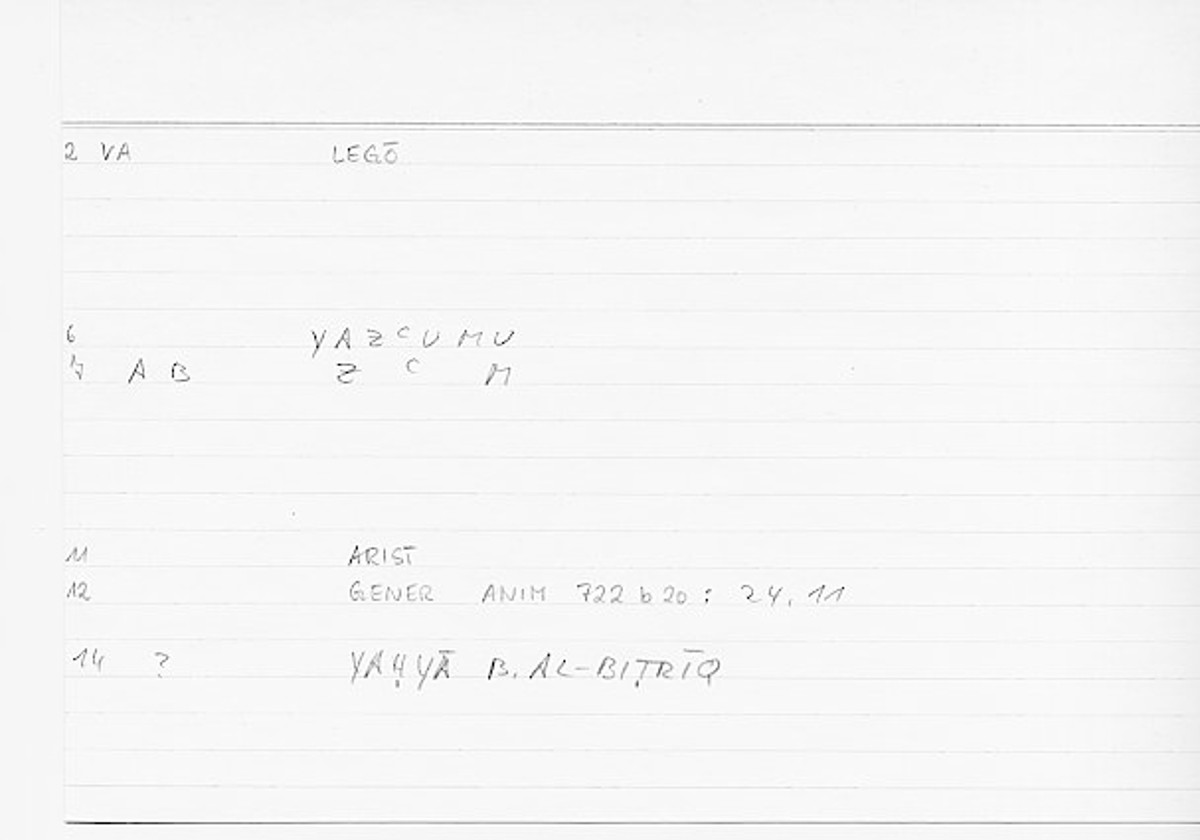 2 VA LEGŌ
6 YAZʿUMU
7 A B Z ʿ M
11 ARIST
12 GENER ANIM 722 b 20 : 24, 11
14 ? YAḤYĀ B. AL-BIṬRĪQ